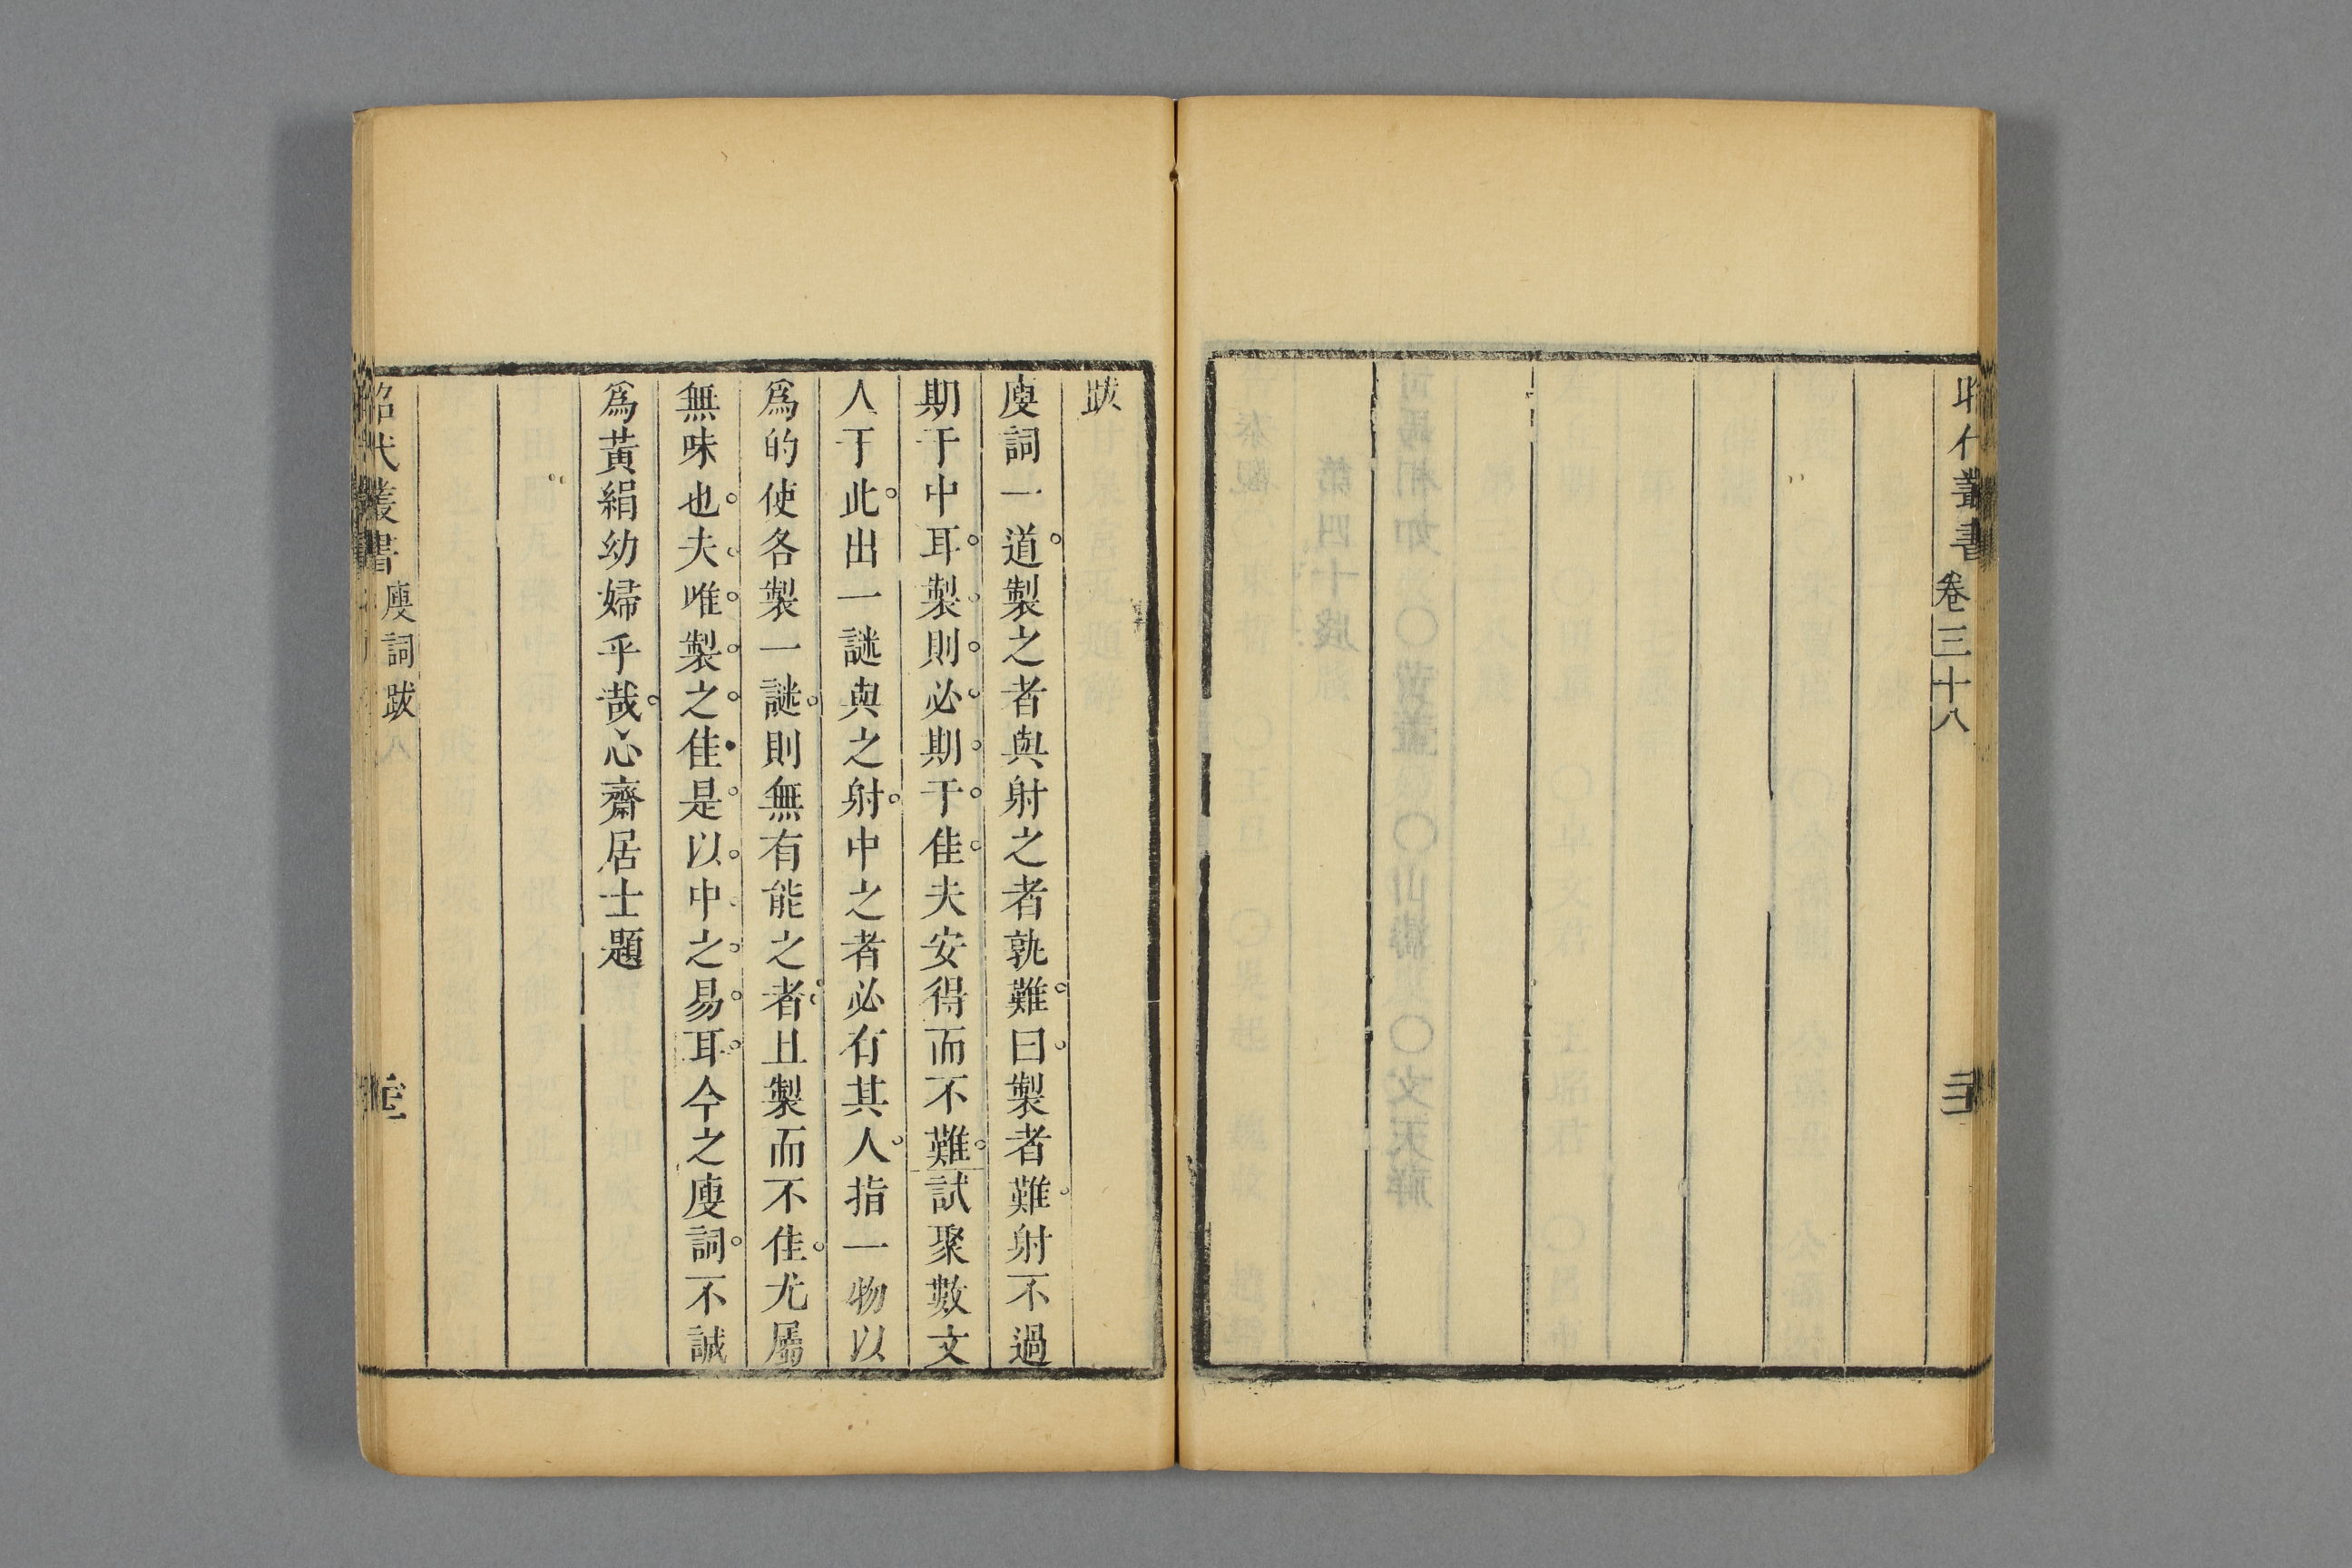 昭代叢書 卷三十八
跋
廋詞一道製之者與射之者孰難曰製者難射不過
期于中耳製則必期于佳夫安得而不難試聚數文
人于此出一謎與之射中之者必有其人指一物以
爲的使各製一謎則無有能之者且製而不佳尤屬
無味也夫唯製之佳是以中之易耳今之廋詞不誠
爲黃絹幼婦乎哉心齋居士題
昭代叢書 廋詞跋